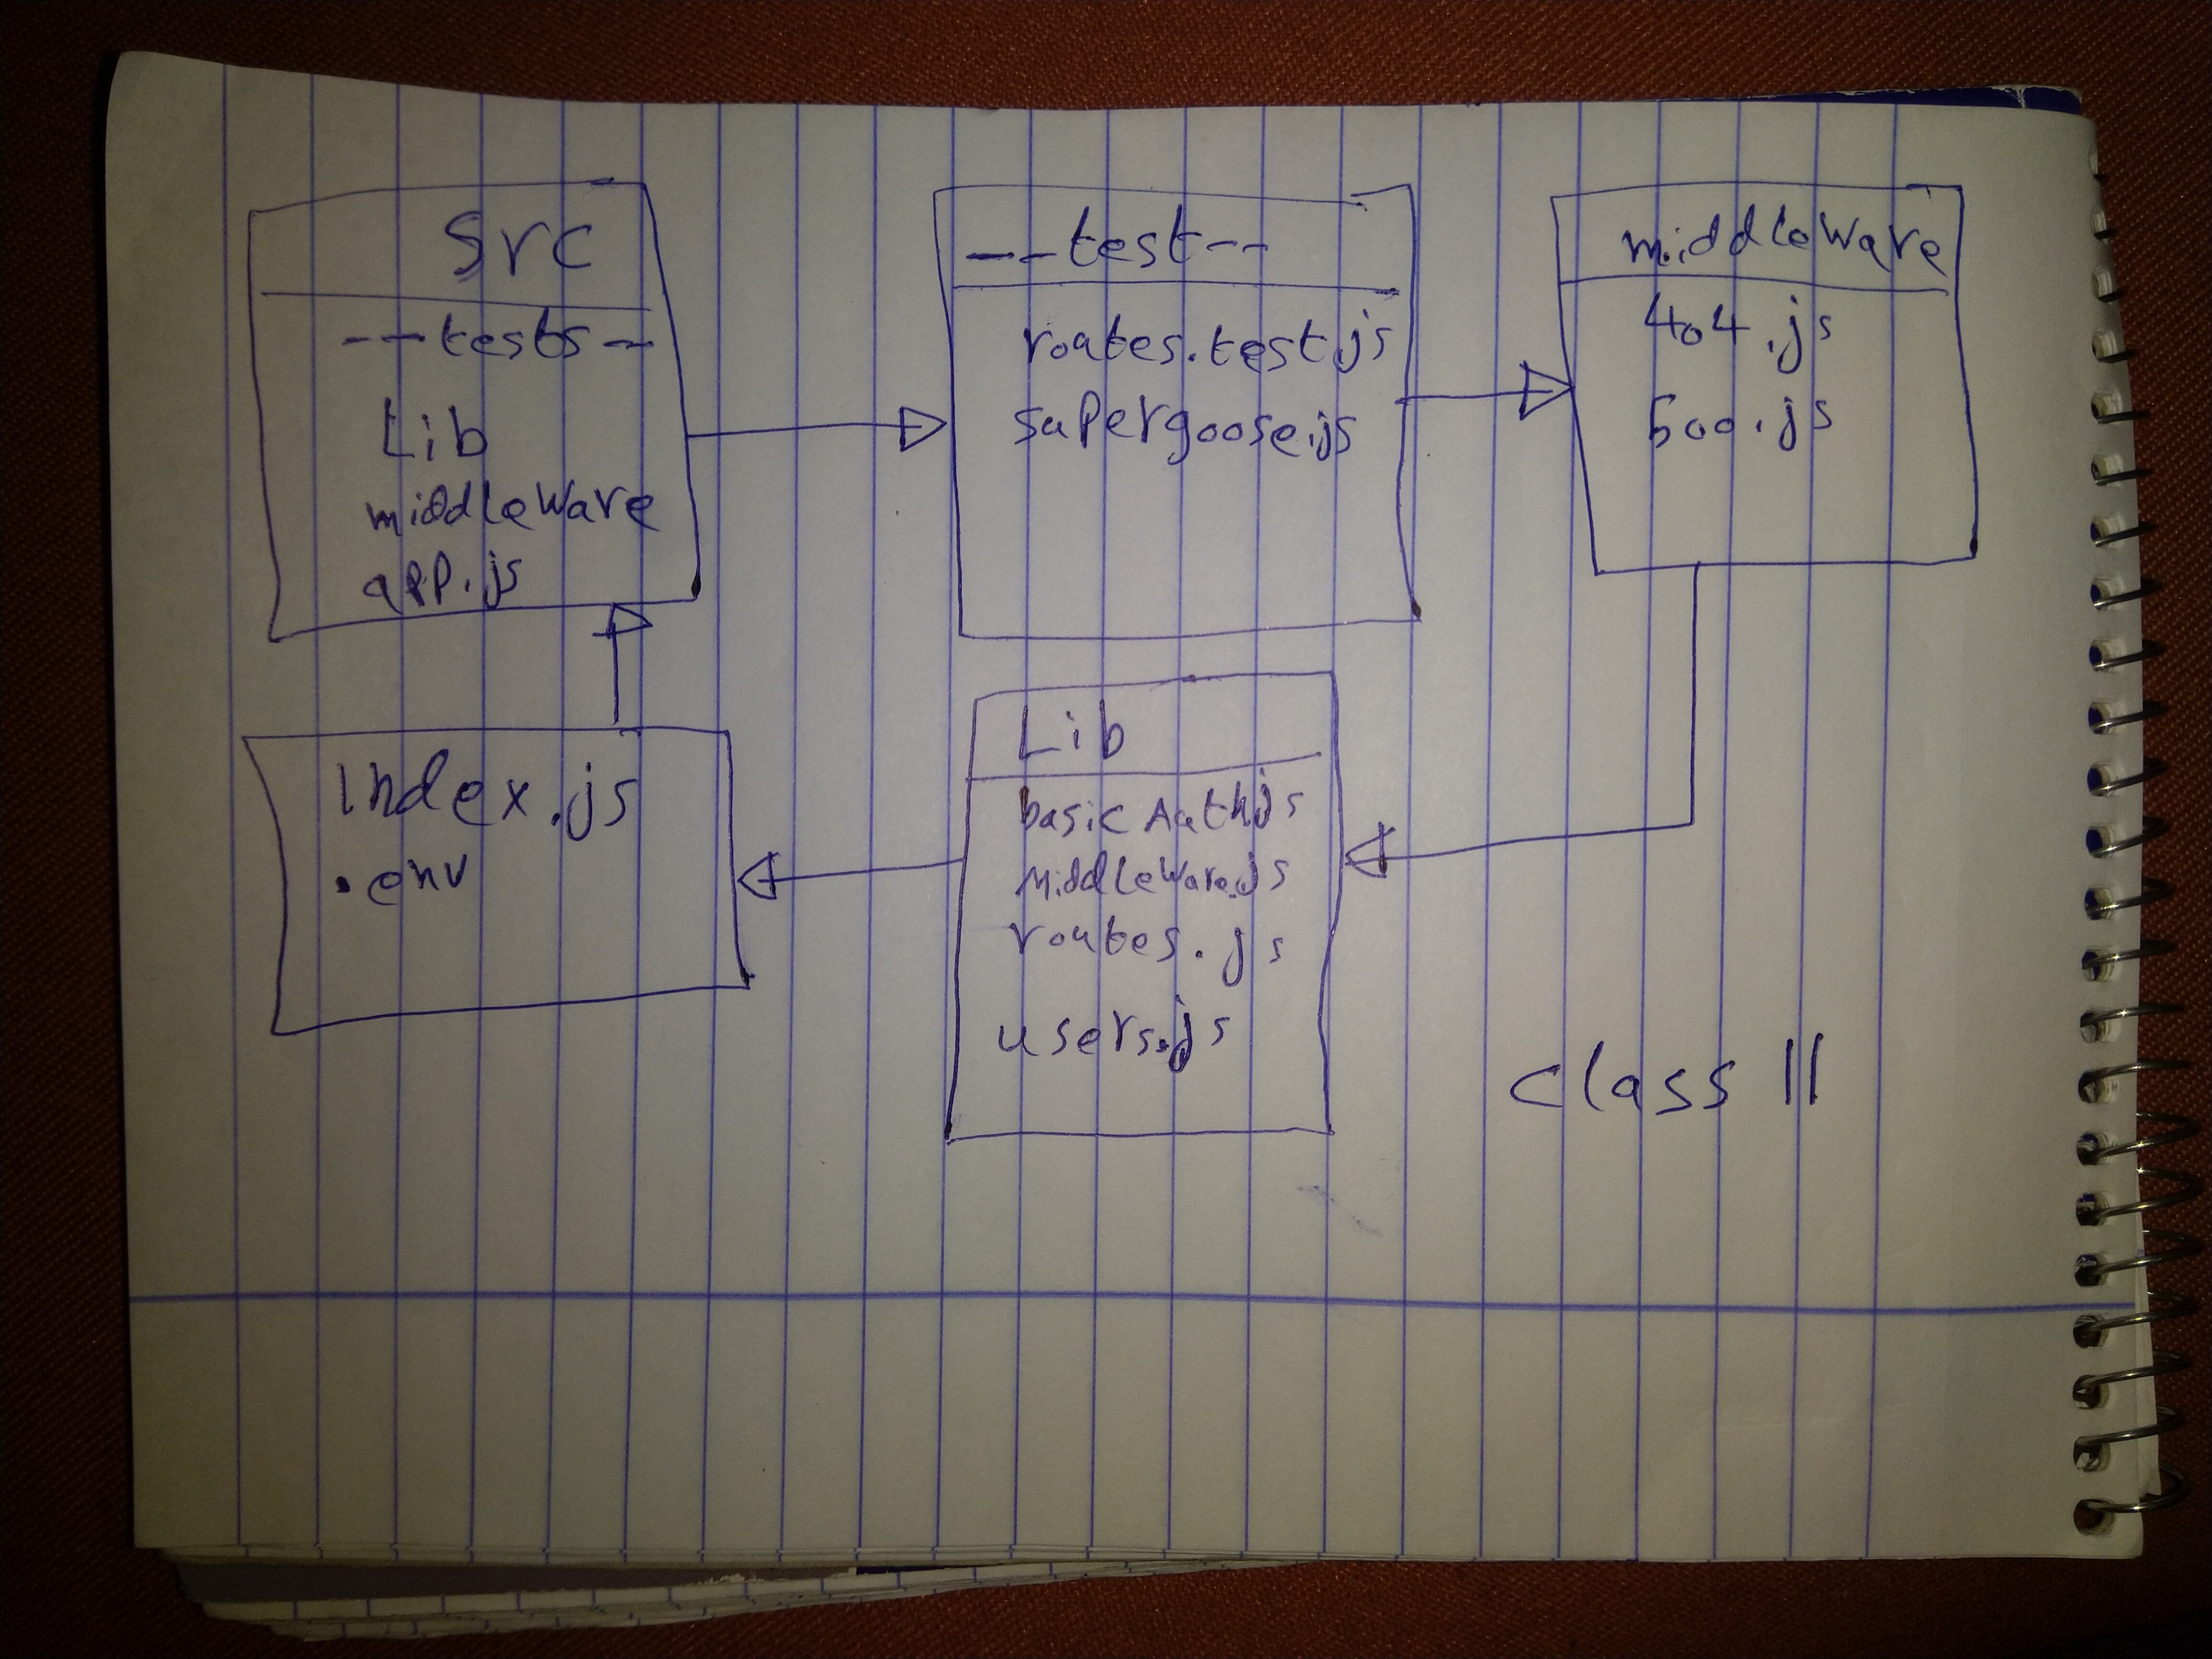 src
--tests--
Lib
middleware
app.js
--test--
routes.test.js
supergoose.js
middleware
404.js
500.js
Index.js
.env
Lib
basicAuth.js
middleware.js
routes.js
users.js
class 11